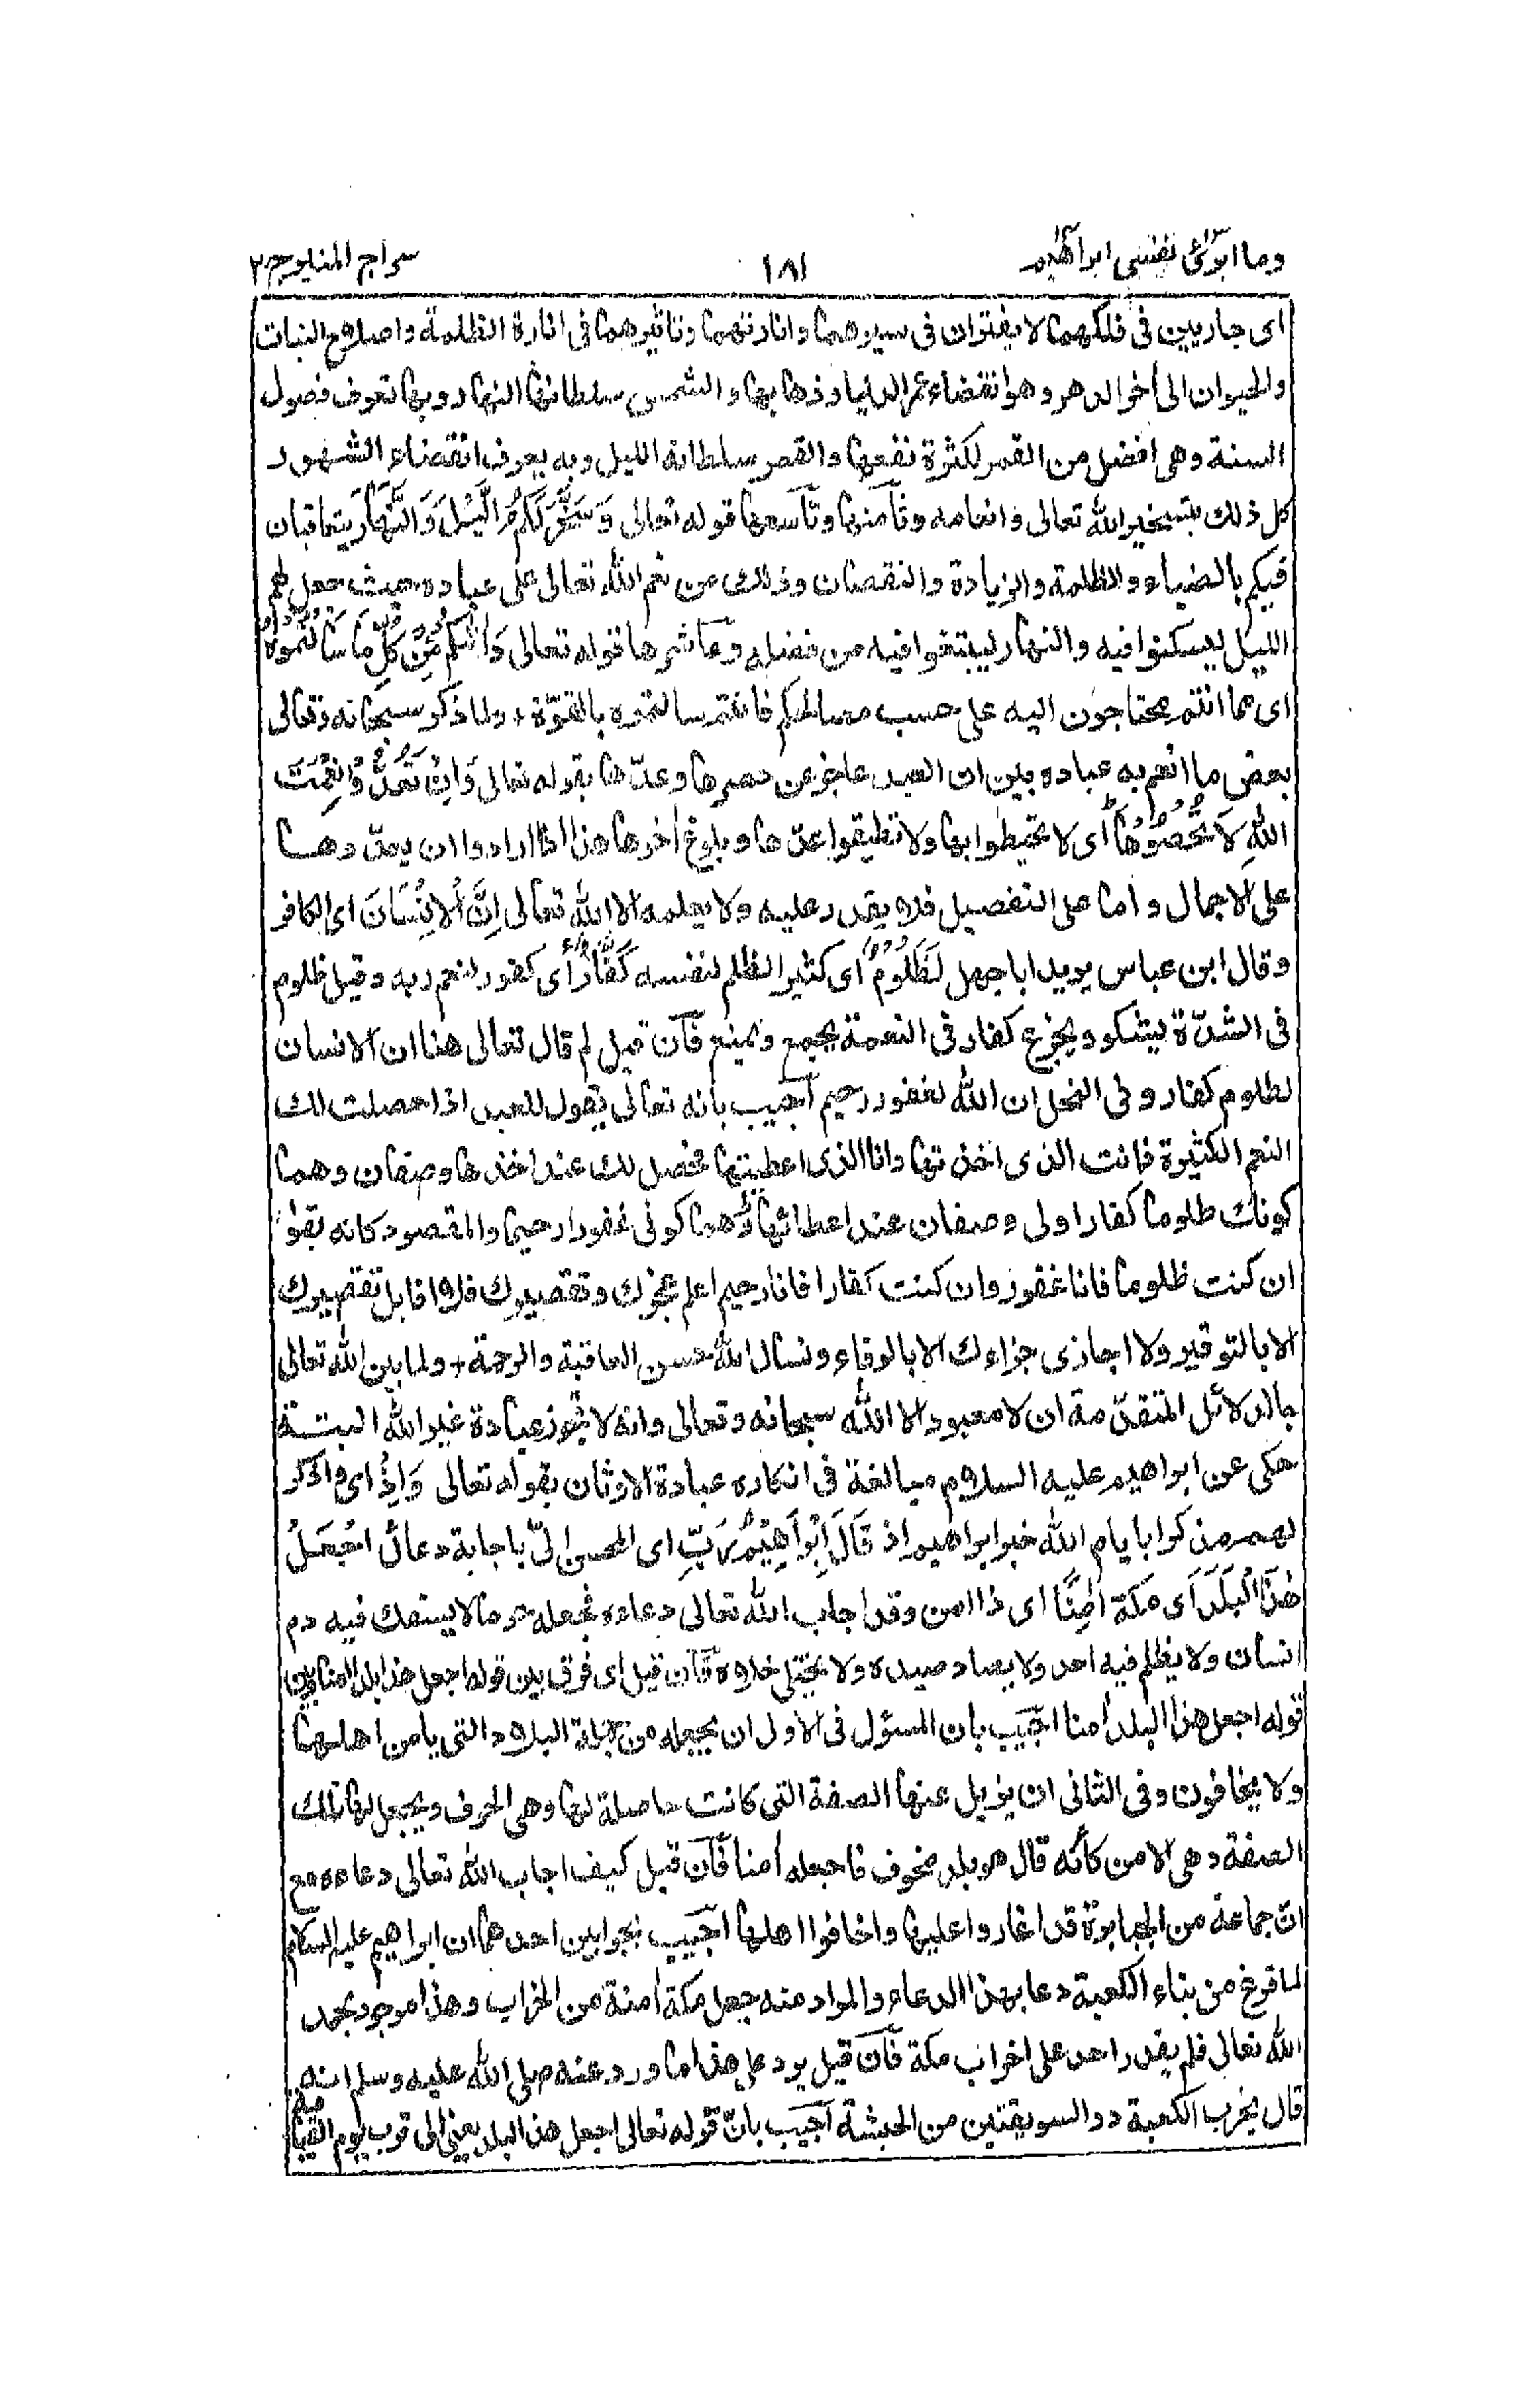 وما ابرّئ نفسی ابراهیم ١٨١ سراج المنیر ج ٢
ای جاریین فی فلکهما لا یفتران فی سیرهما وانارتهما وتاثیرهما فی انارة الظلمة واصلاح النبات
والحیوان الی أخر الدهر وهو انقضاء عمر الدنیا وذهابها والشمس سلطانها النهار وبها تعرف فصول
السنة وهی افضل من القمر لکثرة نفعها والقمر سلطانه اللیل وبه یعرف انقضاء الشهور
کل ذلك بتسخیر الله تعالی وانعامه وثامنها وتاسعها قوله تعالی وَسَخَّرَ لَكُمُ الَّیْلَ وَالنَّهَارَ یتعاقبان
فیکم بالضیاء والظلمة والزیادة والنقصان وذلك من نعم الله تعالی علی عباده حیث جعل لهم
اللیل لیسکنوا فیه والنهار لیبتغوا فیه من فضله وعاشرها قوله تعالی وَاٰتٰكُمْ مِّنْ كُلِّ مَا سَاَلْتُمُوْهُ
ای مما انتم محتاجون الیه علی حسب مصالحکم فانتم سالتموه بالقوّة + ولما ذکر سبحانه وتعالی
بعض ما انعم به عباده بین ان العبد عاجز عن حصرها وعدّها بقوله تعالی وَاِنْ تَعُدُّوْا نِعْمَتَ
اللهِ لَا تُحْصُوْهَا ای لا تحیطوا بها ولا تطیقوا عدّها وبلوغ أخرها هذا اذا ارادوا ان یعدّوها
علی الاجمال واما علی التفصیل فلا یقدر علیه ولا یعلمه الا الله تعالی اِنَّ الْاِنْسَانَ ای الکافر
وقال ابن عباس یرید ابا جهل لَظَلُوْمٌ ای کثیر الظلم لنفسه كَفَّارٌ ای کفور لنعم ربه وقیل ظلوم
فی الشدّة یشکو ویجزع کفار فی النعمة یجمع ویمنع فآن قیل لم قال تعالی هنا ان الانسان
لظلوم کفار وفی النحل ان الله لغفور رحیم اجیب بانه تعالی یقول للعبد اذا حصلت لك
النعم الکثیرة فانت الذی اخذتها وانا الذی اعطیتها فحصل لك عند اخذها وصفان وهما
کونك ظلوما کفارا ولی وصفان عند اعطائها وهما کونی غفورا رحیما والمقصود کانه یقول
ان کنت ظلوما فانا غفور وان کنت کفارا فانا رحیم اعلم عجزك وتقصیرك فلا اقابل تقصیرك
الا بالتوقیر ولا اجازی جزاءك الا بالوفاء ونسال الله حسن العاقبة والرحمة + ولما بین الله تعالی
بالدلائل المتقدّمة ان لا معبود الا الله سبحانه وتعالی وانه لا تجوز عبادة غیر الله البتة
حکی عن ابراهیم علیه السلام مبالغة فی انکاره عبادة الاوثان بقوله تعالی وَاِذْ ای واذکر
لهم مذکرا بایام الله خبر ابراهیم اذ قَالَ اِبْرَاهِیْمُ رَبِّ ای المحسن الیّ باجابة دعائی اجْعَلْ
هٰذَا الْبَلَدَ ای مکة اٰمِنًا ای ذا امن وقد اجاب الله تعالی دعاءه فجعله حرما لا یسفك فیه دم
انسان ولا یظلم فیه احد ولا یصاد صیده ولا یختلی خلاه فآن قیل ای فرق بین قوله اجعل هذا بلدا أمنا وبین
قوله اجعل هذا البلد أمنا اجیب بان المسئول فی الاول ان یجعله من جملة البلاد التی یامن اهلها
ولا یخافون وفی الثانی ان یزیل عنها الصفة التی کانت حاصلة لها وهی الخوف ویجعل لها تلك
الصفة وهی الامن کأنه قال هو بلد مخوف فاجعله أمنا فآن قیل کیف اجاب الله تعالی دعاءه مع
انّ جماعة من الجبابرة قد اغاروا علیها واخافوا اهلها اجیب بجوابین احدهما ان ابراهیم علیه السلام
لما فرغ من بناء الکعبة دعا بهذا الدعاء والمراد منه جعل مکة أمنة من الخراب وهذا موجود بحمد
الله تعالی فلم یقدر احد علی اخراب مکة فآن قیل یرد علی هذا ما ورد عنه صلی الله علیه وسلم انه
قال یخرب الکعبة ذو السویقتین من الحبشة اجیب بانّ قوله تعالی اجعل هذا البلد یعنی الی قرب یوم القیامة